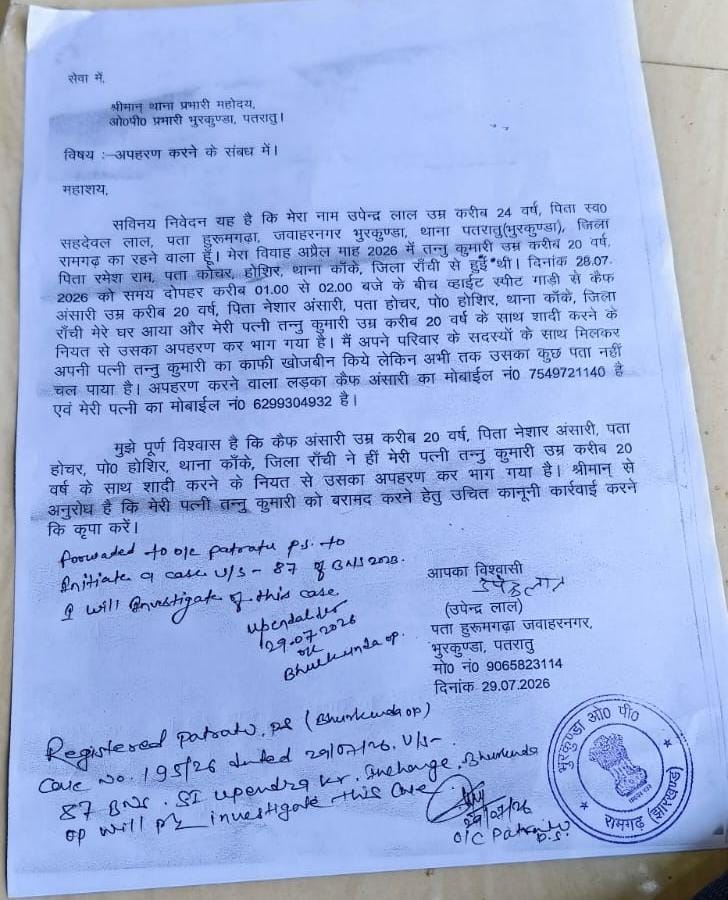 सेवा में,
श्रीमान् थाना प्रभारी महोदय,
ओ०पी० प्रभारी भुरकुण्डा, पतरातु।
विषय :–अपहरण करने के संबध में।
महाशय,
सविनय निवेदन यह है कि मेरा नाम उपेन्द्र लाल उम्र करीब 24 वर्ष, पिता स्व०
सहदेवल लाल, पता हुरूमगढ़ा, जवाहरनगर भुरकुण्डा, थाना पतरातु(भुरकुण्डा), जिला
रामगढ़ का रहने वाला हूँ। मेरा विवाह अप्रैल माह 2026 में तन्नु कुमारी उम्र करीब 20 वर्ष,
पिता रमेश राम, पता कोचर, होशिर, थाना काँके, जिला राँची से हुई थी। दिनांक 28.07.
2026 को समय दोपहर करीब 01.00 से 02.00 बजे के बीच व्हाईट स्पीट गाड़ी से कैफ
अंसारी उम्र करीब 20 वर्ष, पिता नेशार अंसारी, पता होचर, पो० होशिर, थाना काँके, जिला
राँची मेरे घर आया और मेरी पत्नी तन्नु कुमारी उम्र करीब 20 वर्ष के साथ शादी करने के
नियत से उसका अपहरण कर भाग गया है। मैं अपने परिवार के सदस्यों के साथ मिलकर
अपनी पत्नी तन्नु कुमारी का काफी खोजबीन किये लेकिन अभी तक उसका कुछ पता नहीं
चल पाया है। अपहरण करने वाला लड़का कैफ अंसारी का मोबाईल नं० 7549721140 है
एवं मेरी पत्नी का मोबाईल नं० 6299304932 है।
मुझे पूर्ण विश्वास है कि कैफ अंसारी उम्र करीब 20 वर्ष, पिता नेशार अंसारी, पता
होचर, पो० होशिर, थाना काँके, जिला राँची ने हीं मेरी पत्नी तन्नु कुमारी उम्र करीब 20
वर्ष के साथ शादी करने के नियत से उसका अपहरण कर भाग गया है। श्रीमान् से
अनुरोध है कि मेरी पत्नी तन्नु कुमारी को बरामद करने हेतु उचित कानूनी कार्रवाई करने
कि कृपा करें।
Forwaded to o/c patratu p.s. to
Initiate a case U/S - 87 of BNS 2023.
I will Investigate of this case
29.07.2026
o/c
Bhurkunda op.
आपका विश्वासी
(उपेन्द्र लाल)
पता हुरूमगढ़ा जवाहरनगर,
भुरकुण्डा, पतरातु
मो० नं० 9065823114
दिनांक 29.07.2026
Registered Patratu. PS (Bhurkunda op)
Case No. 195/26 dated 29/07/26. U/S-
87 BNS. SI Upendra Kr. Incharge. Bhurkunda
op will plz investigate This Case
29/07/26
O/C Patratu
P.S.
भुरकुण्डा ओ० पी०
रामगढ़ (झारखण्ड)